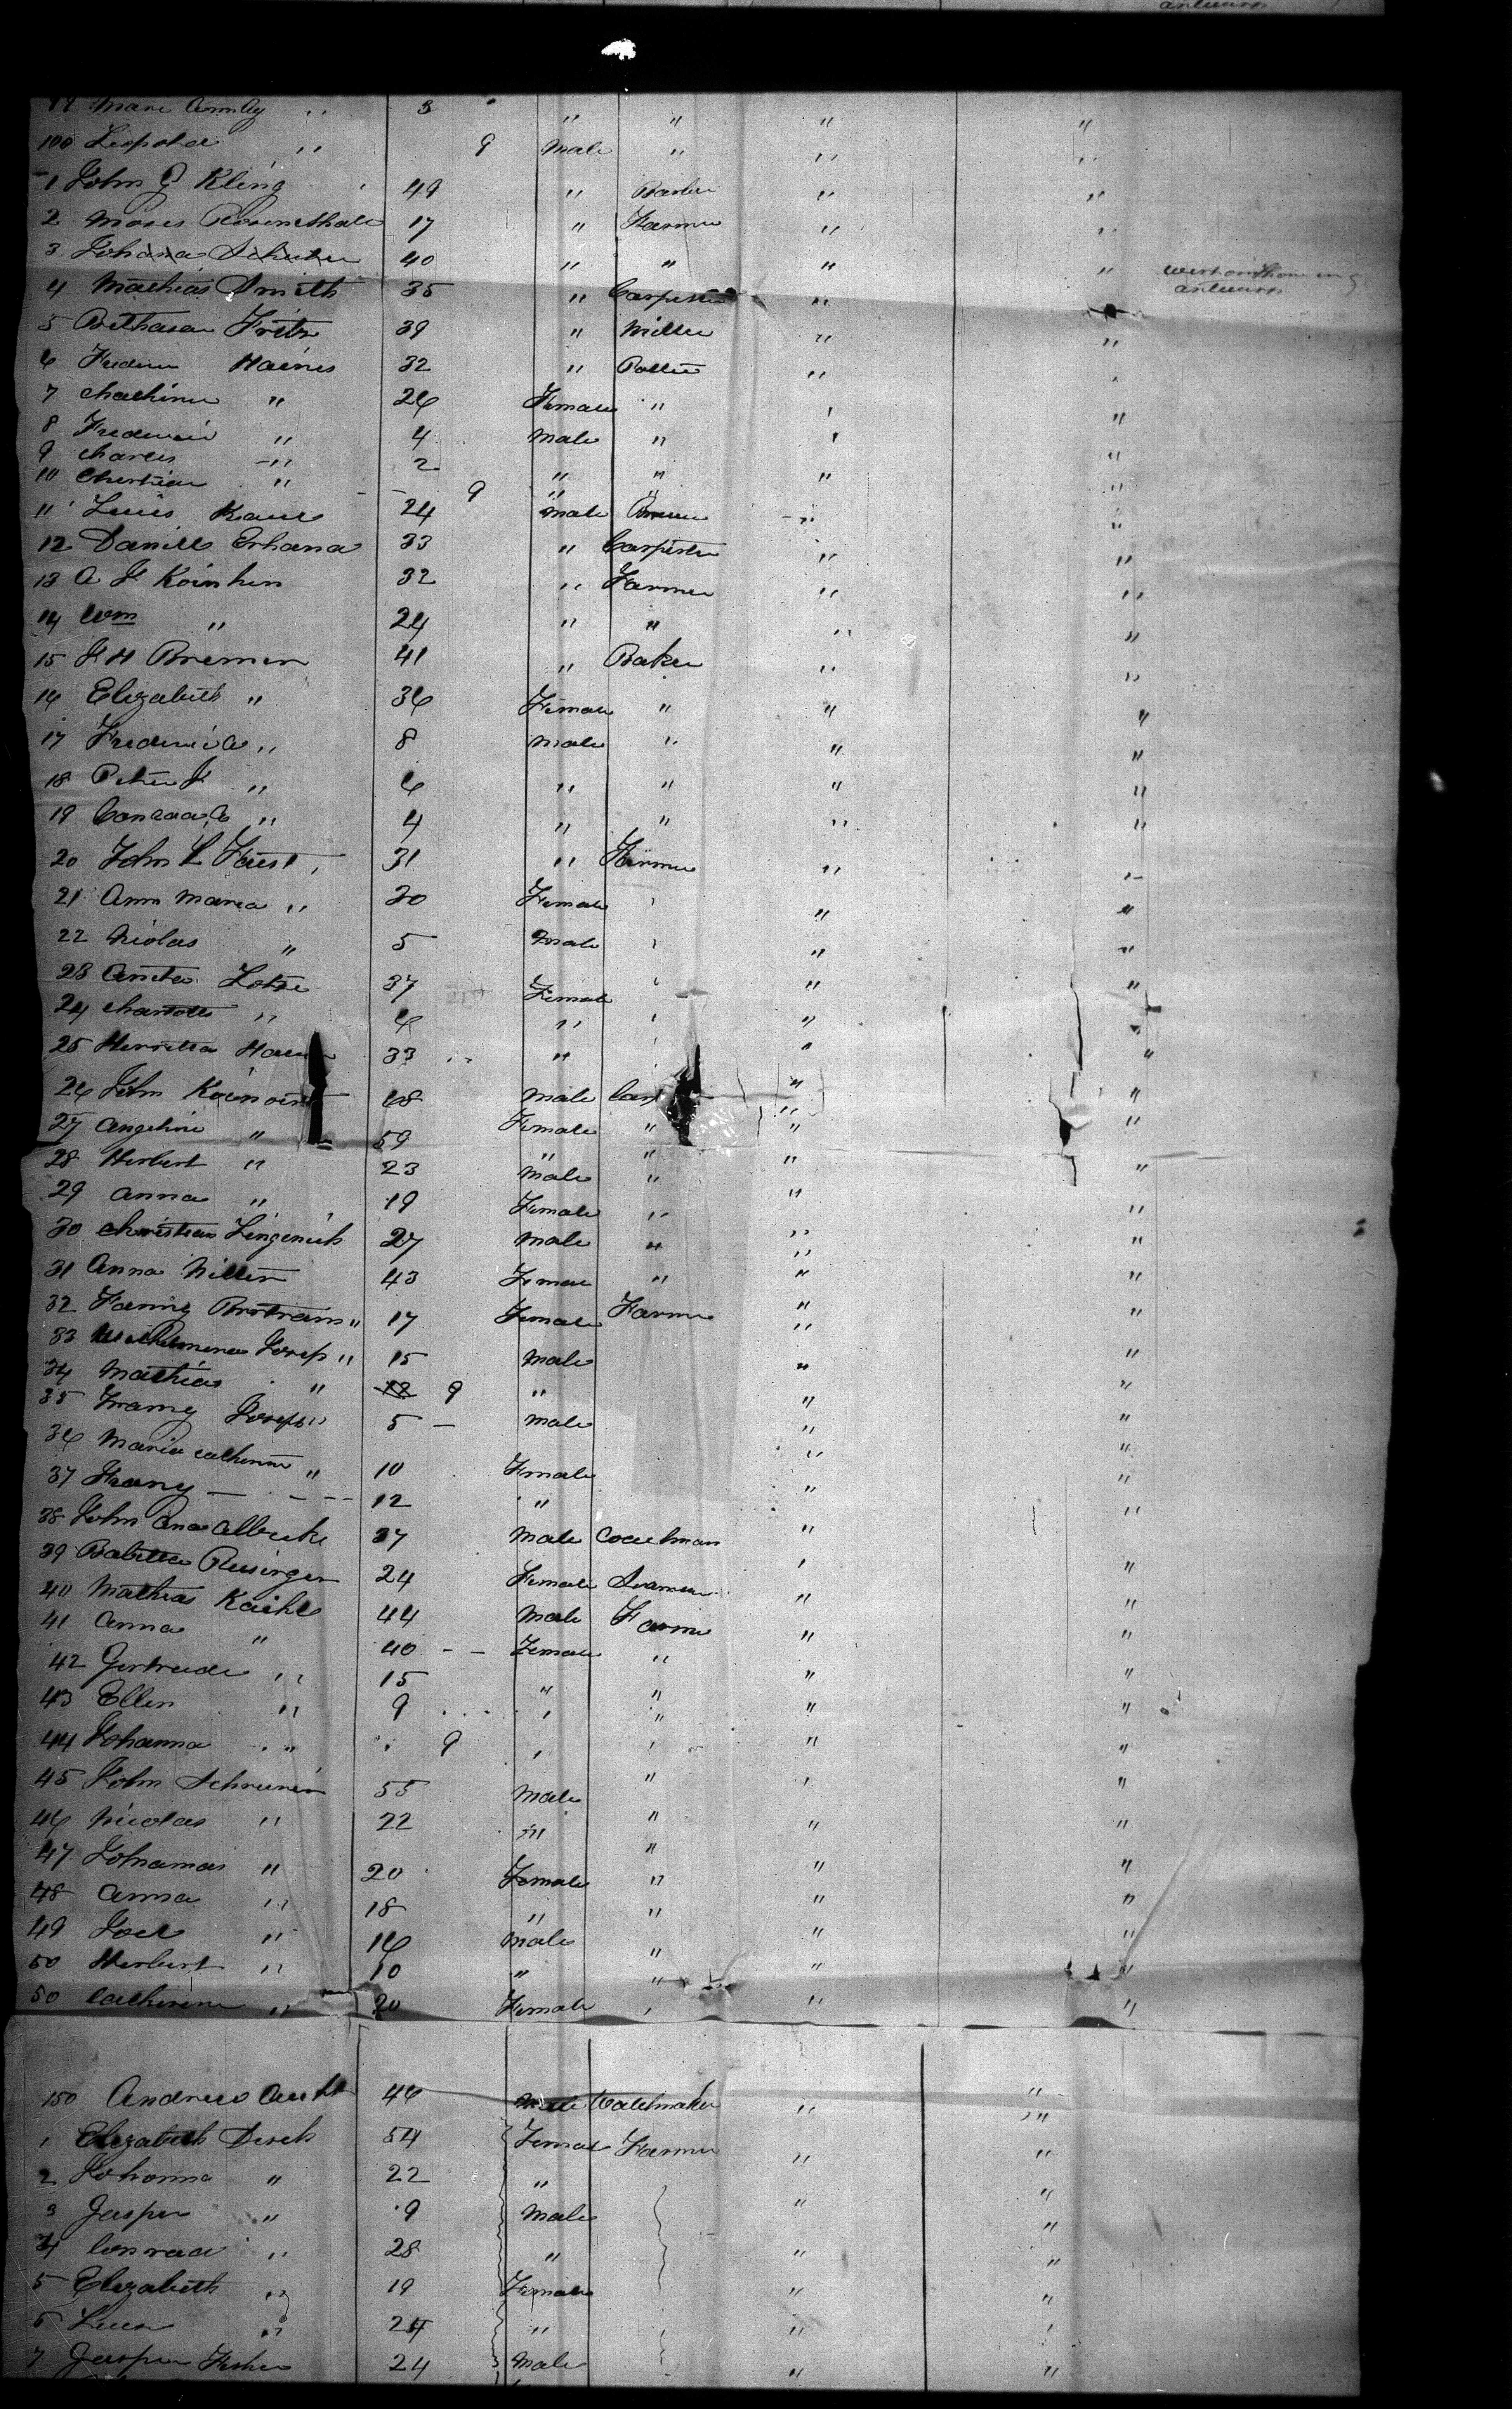 antwerp
99 Marie Ann Ag " 3 " " " "
100 Leopold " 9 Male " " "
1 John G Kling 49 " Barber " "
2 Moses Rosenthale 17 " Farmer " "
3 Johana Schuter 40 " " " "
4 Mathias Smith 35 " Carpenter " antwerp
5 Bethasan Fritz 39 " Miller " "
6 Frederic Haines 32 " Potter "
7 Cathrine " 26 Female " "
8 Frederic " 4 Male " "
9 Charles " 2 " " " "
10 Christian " 9 " "
11 Louis 24 Male "
12 Daniel Erhana 33 " Carpenter " "
13 A J Koinhen 32 " Farmer " "
14 Wm " 24 " " " "
15 J H Bremen 41 " Baker " "
16 Elizabeth " 36 Female " " "
17 Frederic A " 8 Male " " "
18 Peter J " 6 " " " "
19 Conrad C " 4 " " " "
20 John L Faust 31 " Farmer " "
21 Ann Maria " 30 Female " "
22 Nicolas " 5 Male " "
23 Anita Lotze 37 Female " "
24 Charlotte " 6 " " "
25 Henrietta 33 " " "
26 John 68 Male " "
27 Angeline " 59 Female " " "
28 Herbert " 23 Male " " "
29 Anna " 19 Female " " "
30 Christian Lingenich 27 Male " " "
31 Anna 43 Female " " "
32 Fanny Bertram " 17 Female Farmer " "
33 Wilhelmena Josep " 15 Male " "
34 Mathias " 12 9 " " "
35 Franz Joseph " 5 Male " "
36 Maria Catherine " 10 Female " "
37 Frany 12 " " "
38 John Albrecht 37 Male Coachman " "
39 Babetta Reisinger 24 Female " "
40 Mathias Kaihl 44 Male Farmer " "
41 Anna " 40 Female " " "
42 Gertrude " 15 " " " "
43 Ellen " 9 " " " "
44 Johanna " 9 " " " "
45 John Schreiner 55 Male " " "
46 Nicolas " 22 " " " "
47 Johannas " 20 Female " " "
48 Anna " 18 " " " "
49 Joel " 16 Male " " "
50 Herbert " 10 " " " "
50 Catherine " 20 Female " " "
150 Andrew 46 Male Watchmaker " "
1 Elizabeth Desch 54 Female Farmer " "
2 Johanna " 22 " " "
3 Jasper " 9 Male " "
4 Conrad " 28 " " "
5 Elizabeth " 19 Female " "
6 " 24 " " "
7 Jasper Fisher 24 Male " "